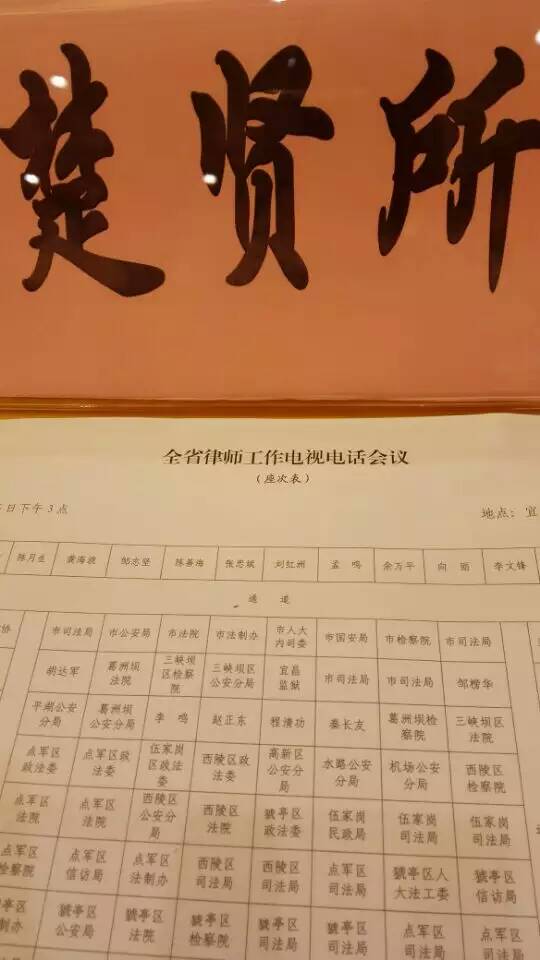 楚贤所
全省律师工作电视电话会议
（座次表）
日下午3点 地点：宜
陈月生 黄海波 邹志坚 陈善海 张忠斌 刘红洲 孟鸣 余万平 向丽 李文锋
通道
协 市司法局 市公安局 市法院 市法制办 市人大内司委 市国安局 市检察院 市司法局
胡达军 葛洲坝法院 三峡坝区检察院 三峡坝区公安分局 宜昌监狱 市司法局 市司法局 邹楷华
平湖公安分局 葛洲坝公安分局 李鸣 赵正东 程清功 秦长友 葛洲坝检察院 三峡坝区法院
点军区政法委 点军区政法委 伍家岗区政法委 西陵区政法委 高新区公安分局 水路公安分局 机场公安分局 西陵区检察院
点军区法院 点军区法院 西陵区公安分局 西陵区法院 猇亭区政法委 伍家岗民政局 伍家岗司法局 伍家岗司法局
点军区检察院 点军区信访局 点军区法制办 西陵区司法局 西陵区司法局 点军区司法局 猇亭区人大法工委 猇亭区信访局
猇亭区制办 猇亭区公安局 猇亭区法院 猇亭区检察院 猇亭区司法局 猇亭区司法局 点军区司法局 点军区司法局